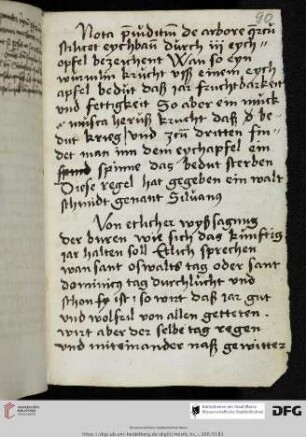 90
Nota de arbore
scilicet eychbau durch iij eych
opfel bezeichent Wan so eyn
wurmlin krücht uss einem eych
apfel bedüt dass jar fruchtbarkeit
und fettigkeit So aber ein muck
musca heruss krücht dass be
dut krieg und zcü dritten fin
det man inn dem eychapfel ein
spinne das bedut sterben
Diese regel hat gegeben ein walt
schmidt genant Siluanus
Von etlicher wyssagung
der buren wie sich das künftig
jar halten soll Etlich sprechen
wan sant oswalts tag oder sant
dominicus tag durchlücht und
schon ist so wirt dass jar gut
und wolfeil von allen getreten.
wirt aber der selbe tag regen
und miteinander nass gewitter
Wissenschaftliche Stadtbibliothek Mainz
DFG